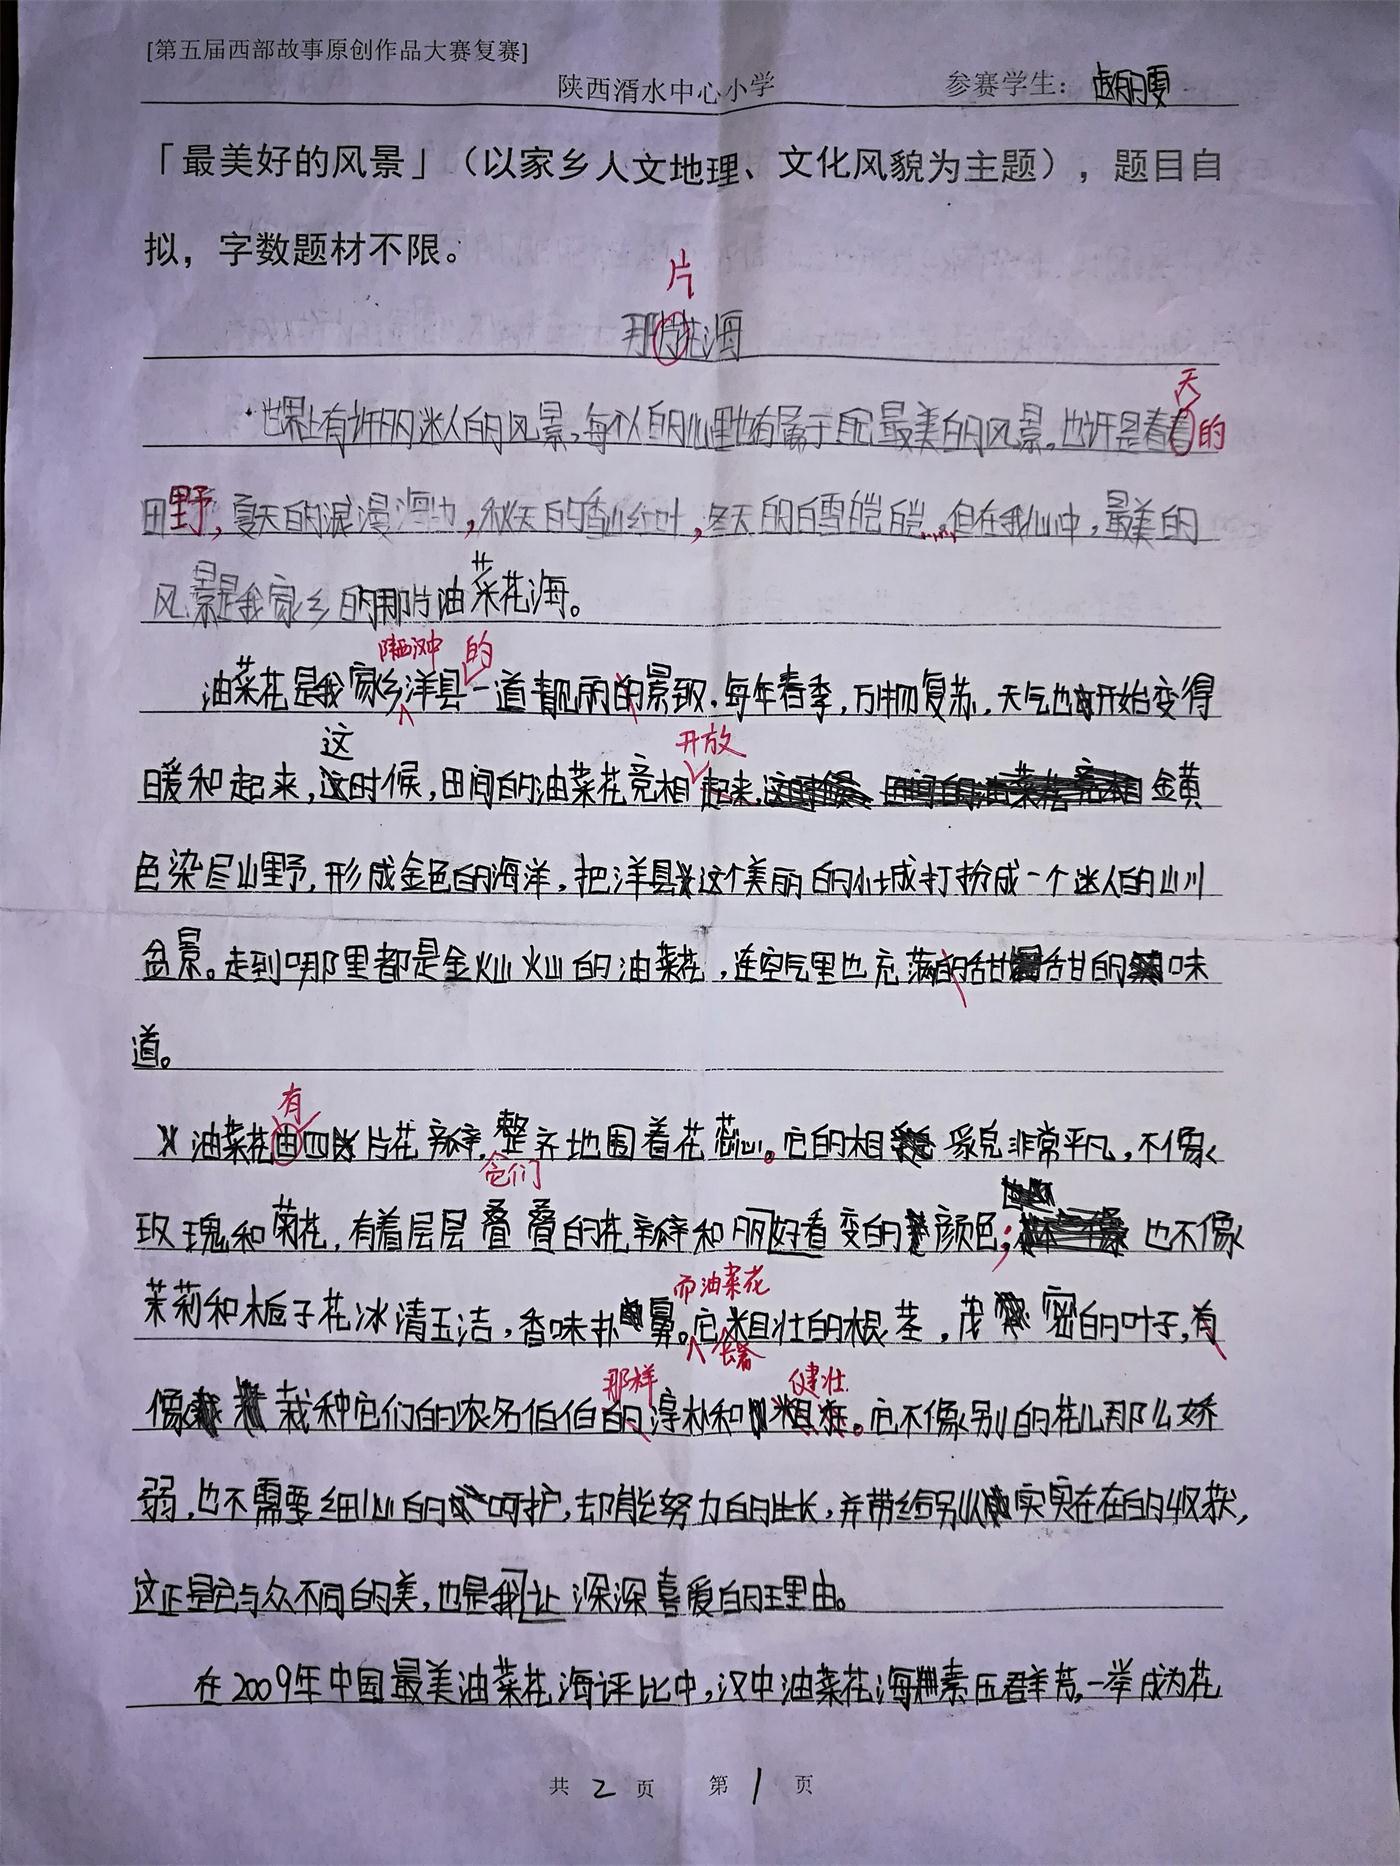 [第五届西部故事原创作品大赛复赛]
陕西湑水中心小学 参赛学生：
「最美好的风景」（以家乡人文地理、文化风貌为主题），题目自
拟，字数题材不限。
片
那片花海
天
世界上有许多迷人的风景,每个人的心里也有属于自己最美的风景。也许是春的
田野,夏天的浪漫海边,秋天的香山红叶,冬天的白雪皑皑……但在我心中,最美的
风景是我家乡的那片油菜花海。
陕西汉中 的
油菜花是我家乡洋县一道靓丽的景致.每年春季,万物复苏,天气也开始变得
这 开放
暖和起来,这时候,田间的油菜花竞相起来, 金黄
色染尽山野,形成金色的海洋,把洋县这个美丽的小城打扮成一个迷人的山川
盆景。走到哪里都是金灿灿的油菜花,连空气里也充满的甜甜的味
道。
有
油菜花由四片花瓣,整齐地围着花蕊心。它的相貌非常平凡,不像
它们
玫瑰和菊花,有着层层叠叠的花瓣和好看变的颜色;也不像
而油菜花
茉莉和栀子花冰清玉洁,香味扑鼻。它粗壮的根茎,茂密的叶子,有
长着
那样 健壮
像栽种它们的农名伯伯的淳朴和粗。它不像别的花儿那么娇
弱,也不需要细心的呵护,却能努力的生长,并带给别人实实在在的收获,
这正是它与众不同的美,也是我让深深喜爱的理由。
在2009年中国最美油菜花海评比中,汉中油菜花海压群芳,一举成为花
共 2 页 第 1 页